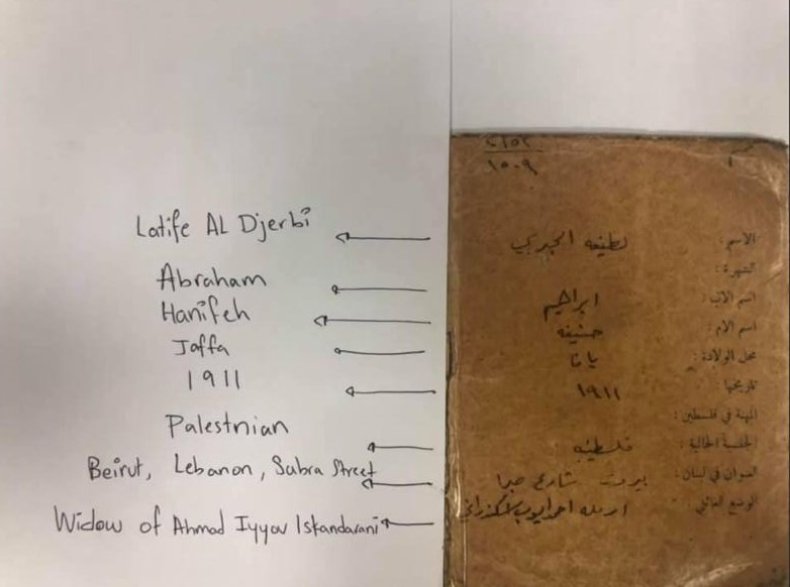 Latife AL Djerbi
Abraham
Hanifeh
Jaffa
1911
Palestnian
Beirut, Lebanon, Sabra Street
Widow of Ahmad Iyyov Iskandarani
١٥٠٩
الاسم: لطيفه الجربي
الشهرة:
اسم الاب: ابراهيم
اسم الام: حنيفه
محل الولادة: يافا
تاريخها: ١٩١١
المهنة في فلسطين:
الجنسية الحالية: فلسطينيه
العنوان في لبنان: بيروت شارع صبرا
الوضع العائلي: ارمله احمد ايوب اسكندراني